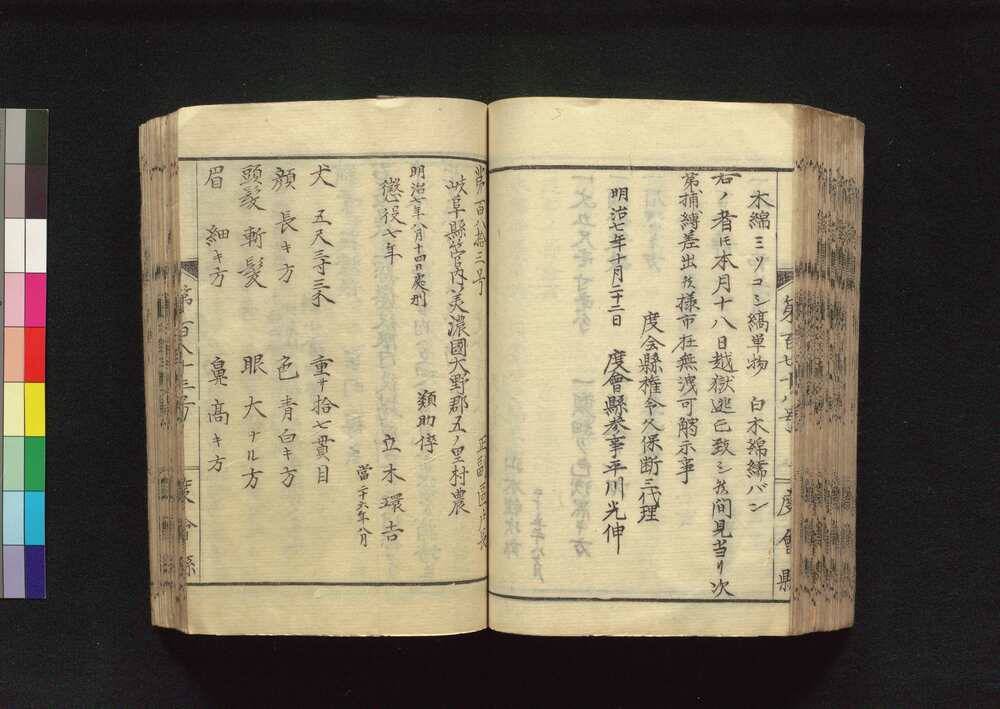 第百七十八号　度會縣
木綿ミソコシ縞単物　白木綿襦バン
右ノ者共本月十八日越獄逃亡致シ候間見当リ次
第捕縛差出候様市在無洩可觸示事
度会縣権令久保断三代理
明治七年十月二十二日　度會縣参事平川光伸
第百八拾三号
正副區戸長
岐阜縣管内美濃國大野郡五ノ里村農
類助倅
明治七年八月十四日處刑
懲役七年　立木環吉
當二十六年八月
丈　五尺三寸三分　重サ拾七貫目
顔長キ方　色青白キ方
頭髪斬髪　眼大ナル方
眉細キ方　鼻高キ方
第百八十三号　度會縣